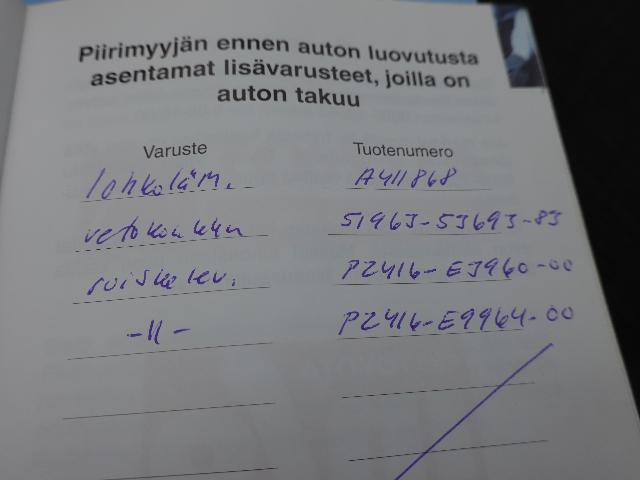 Piirimyyjän ennen auton luovutusta
asentamat lisävarusteet, joilla on
auton takuu
Varuste Tuotenumero
lohkoläm. A411868
vetokoukku 51963-53693-83
roiskelev. PZ416-E3960-00
-11- PZ416-E9964-00